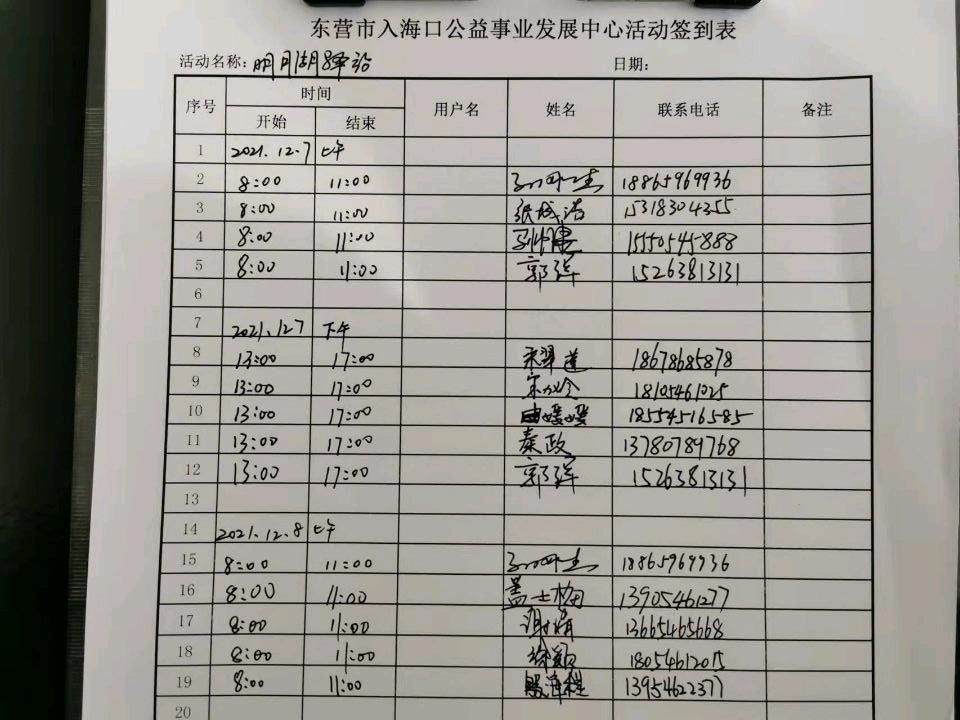 东营市入海口公益事业发展中心活动签到表
活动名称:明月湖驿站 日期:
序号 时间 用户名 姓名 联系电话 备注
开始 结束
1 2021.12.7 上午
2 8:00 11:00 18865969936
3 8:00 11:00 张成浩 15318304355
4 8:00 11:00 15550545888
5 8:00 11:00 郭洋 15263813131
6
7 2021.127 下午
8 13:00 17:00 宋翠莲 18678685878
9 13:00 17:00 宗 18105461025
10 13:00 17:00 由媛媛 18554516585
11 13:00 17:00 秦政 13780789768
12 13:00 17:00 郭洋 15263813131
13
14 2021.12.8 上午
15 8:00 11:00 18865969936
16 8:00 11:00 盖士梅 13905461277
17 8:00 11:00 谢娟 13665465668
18 8:00 11:00 徐颖 18054612015
19 8:00 11:00 13954622377
20